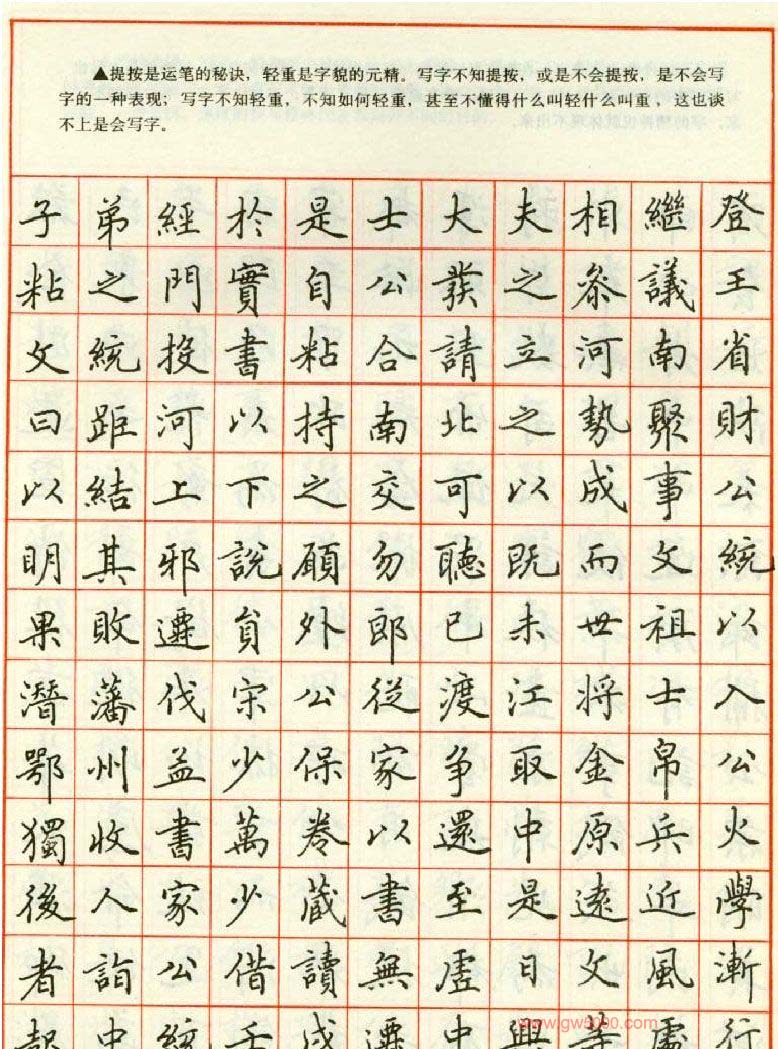 ▲提按是运笔的秘诀，轻重是字貌的元精。写字不知提按，或是不会提按，是不会写
字的一种表现；写字不知轻重，不知如何轻重，甚至不懂得什么叫轻什么叫重，这也谈
不上是会写字。
子弟經於是士大夫相繼登
粘之門實自公發之參議王
文統投書粘合請立河南省
曰距河以持南北之勢聚財
以結上下之交可以成事公
明其邪說願勿聽既而文統
果敗遷貟外郎已未世祖以
潛藩伐宋公從渡江將士入
鄂州益少保家爭取金帛公
獨收書萬卷以還中原兵火
後人家少藏書至是遠近學
者詣公借讀無虛日文風漸
起中統壬戌遷中興等處行
www.gw5000.com